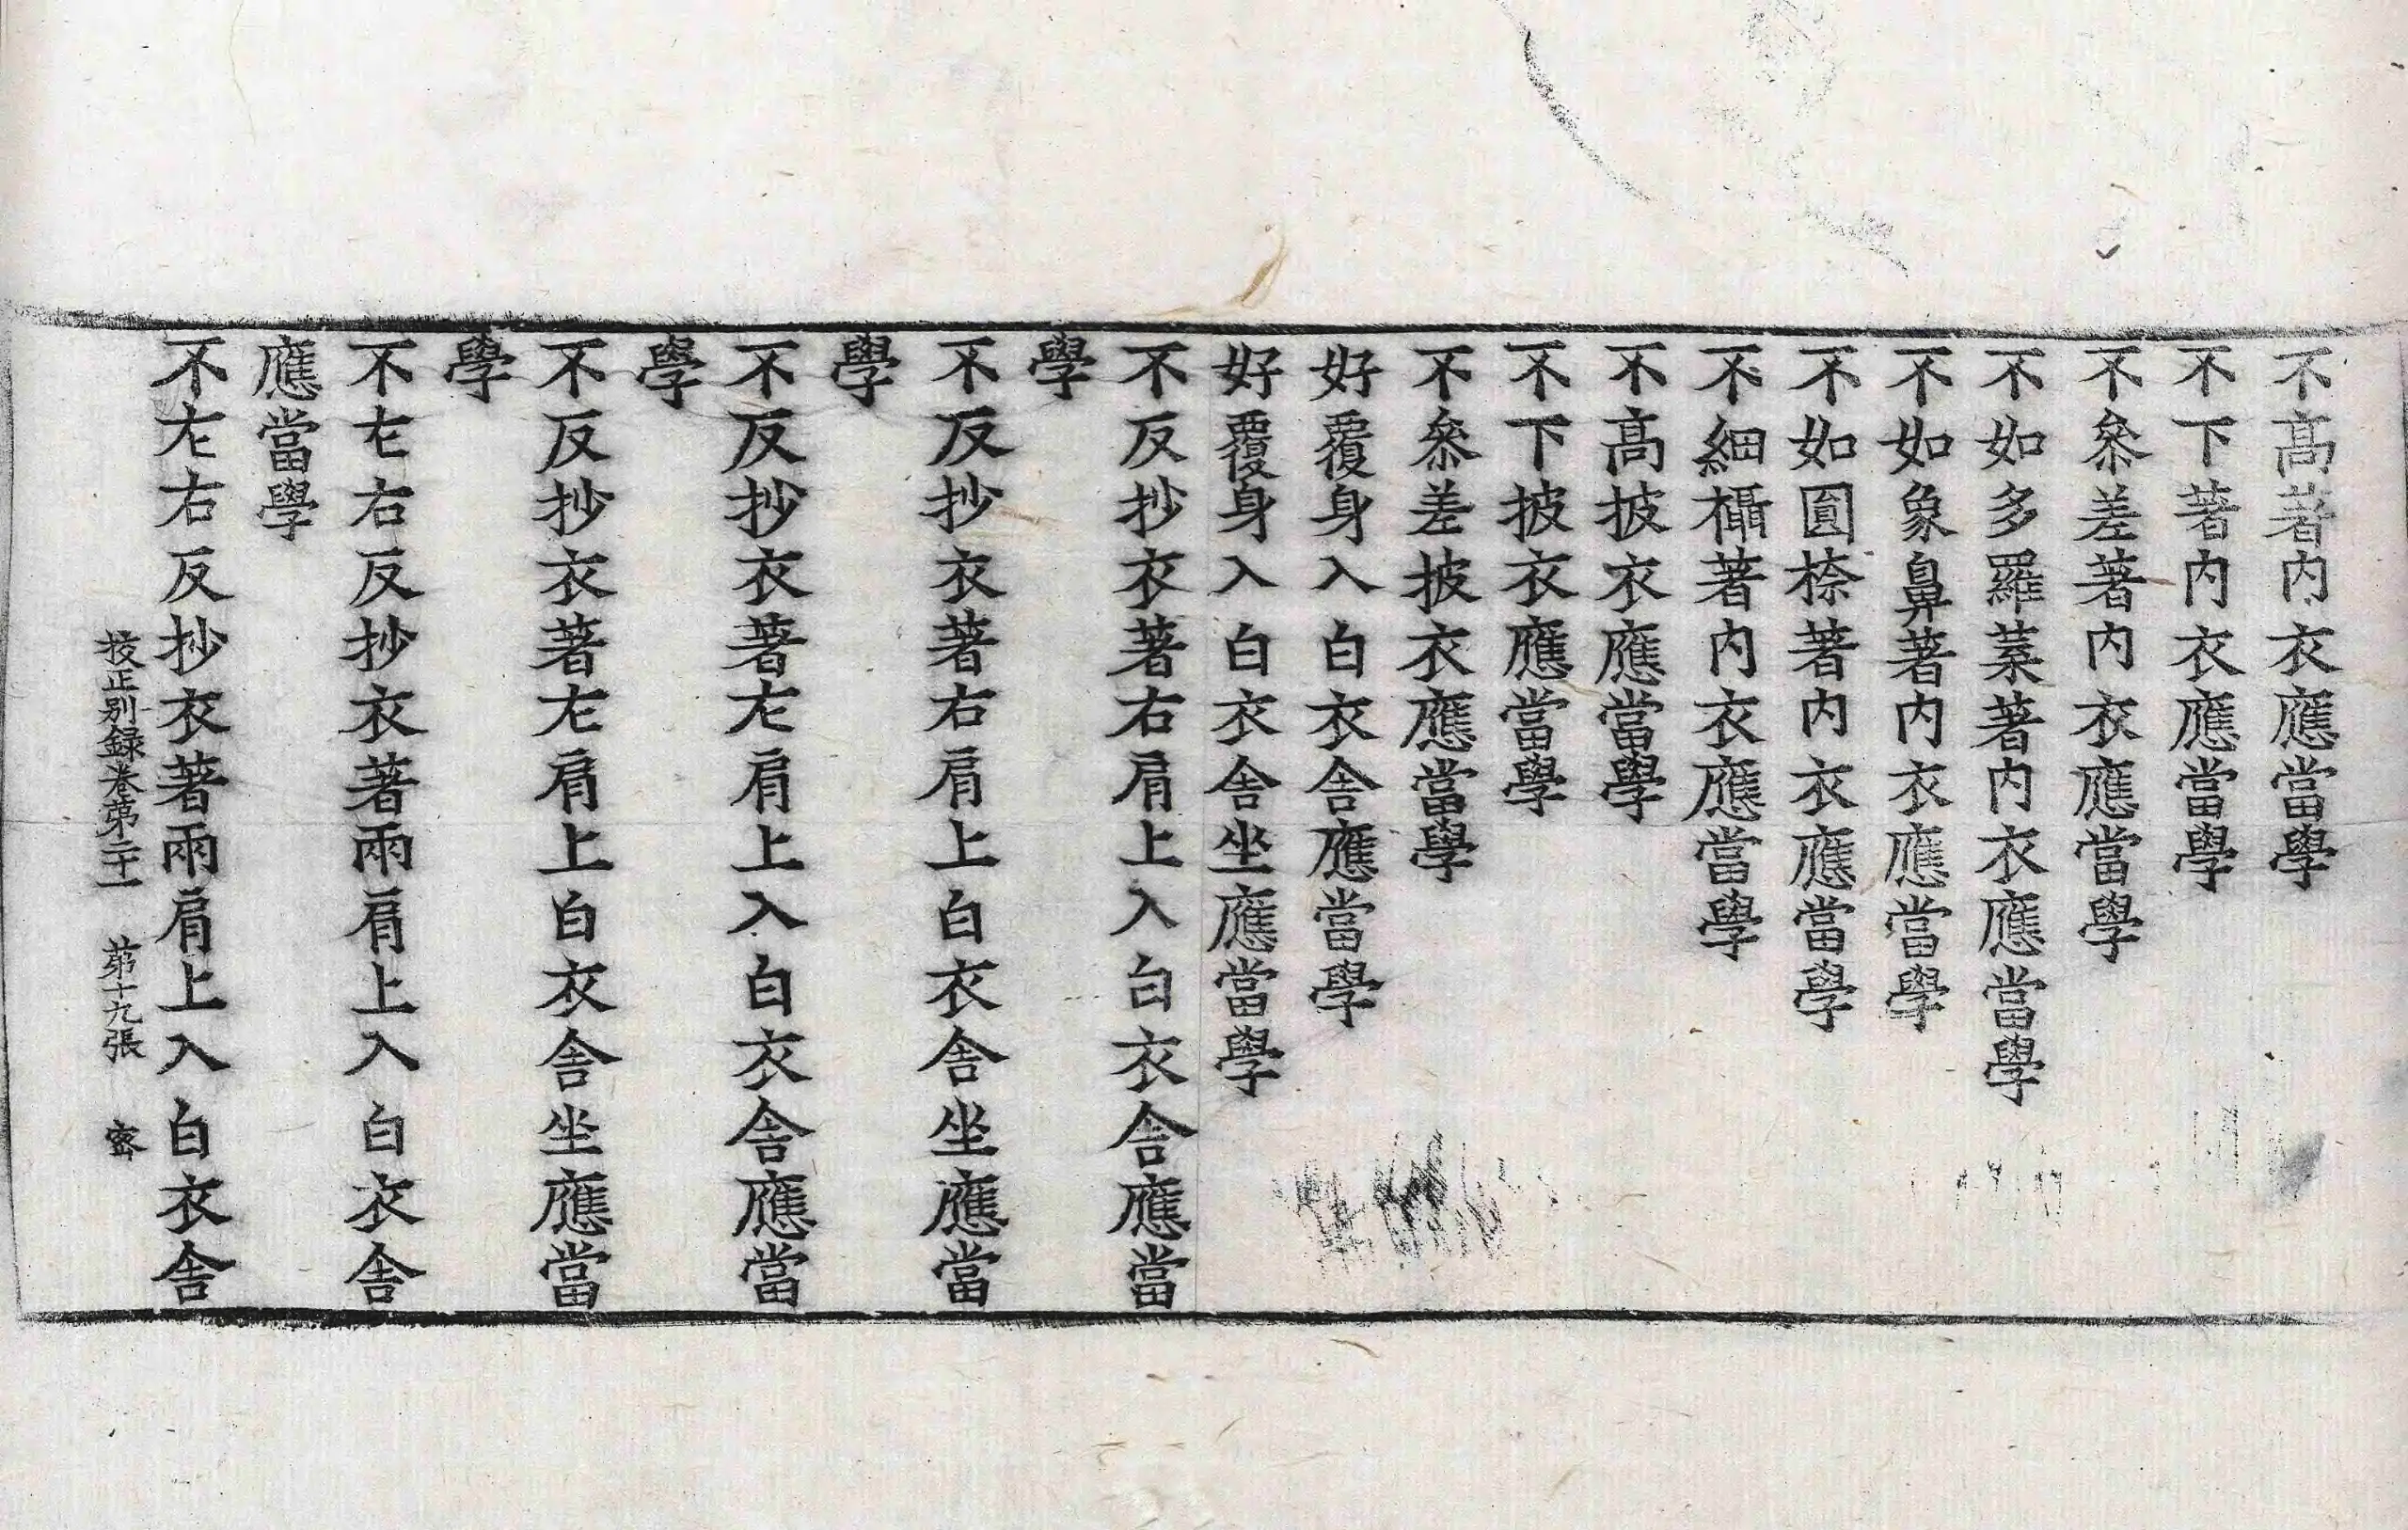 不高著内衣應當學
不下著内衣應當學
不叅差著内衣應當學
不如多羅葉著内衣應當學
不如象鼻著内衣應當學
不如圎㮈著内衣應當學
不細攝著内衣應當學
不高披衣應當學
不下披衣應當學
不叅差披衣應當學
好覆身入白衣舎應當學
好覆身入白衣舎坐應當學
不反抄衣著右肩上入白衣舎應當
學
不反抄衣著右肩上白衣舎坐應當
學
不反抄衣著左肩上入白衣舎應當
學
不反抄衣著左肩上白衣舎坐應當
學
不左右反抄衣著兩肩上入白衣舎
應當學
不左右反抄衣著兩肩上入白衣舎
挍正别録卷苐二十一 苐十九張 宻